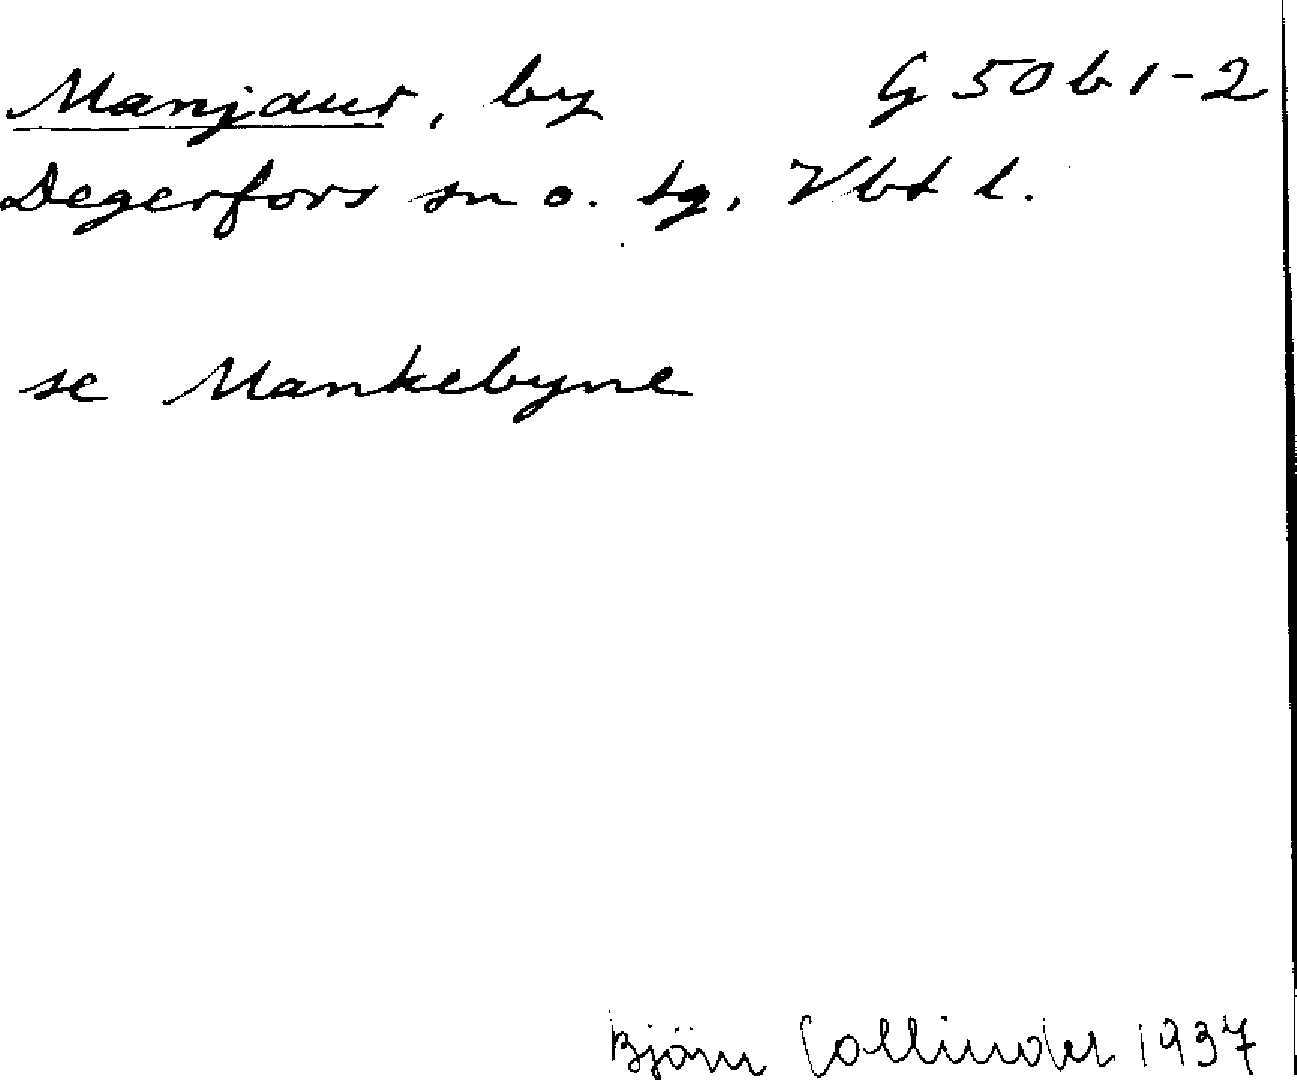 Manjaur, by G 50 b 1-2
Degerfors sn o. tg, Vbt l.
se Mankebyne
Björn Collinder 1937